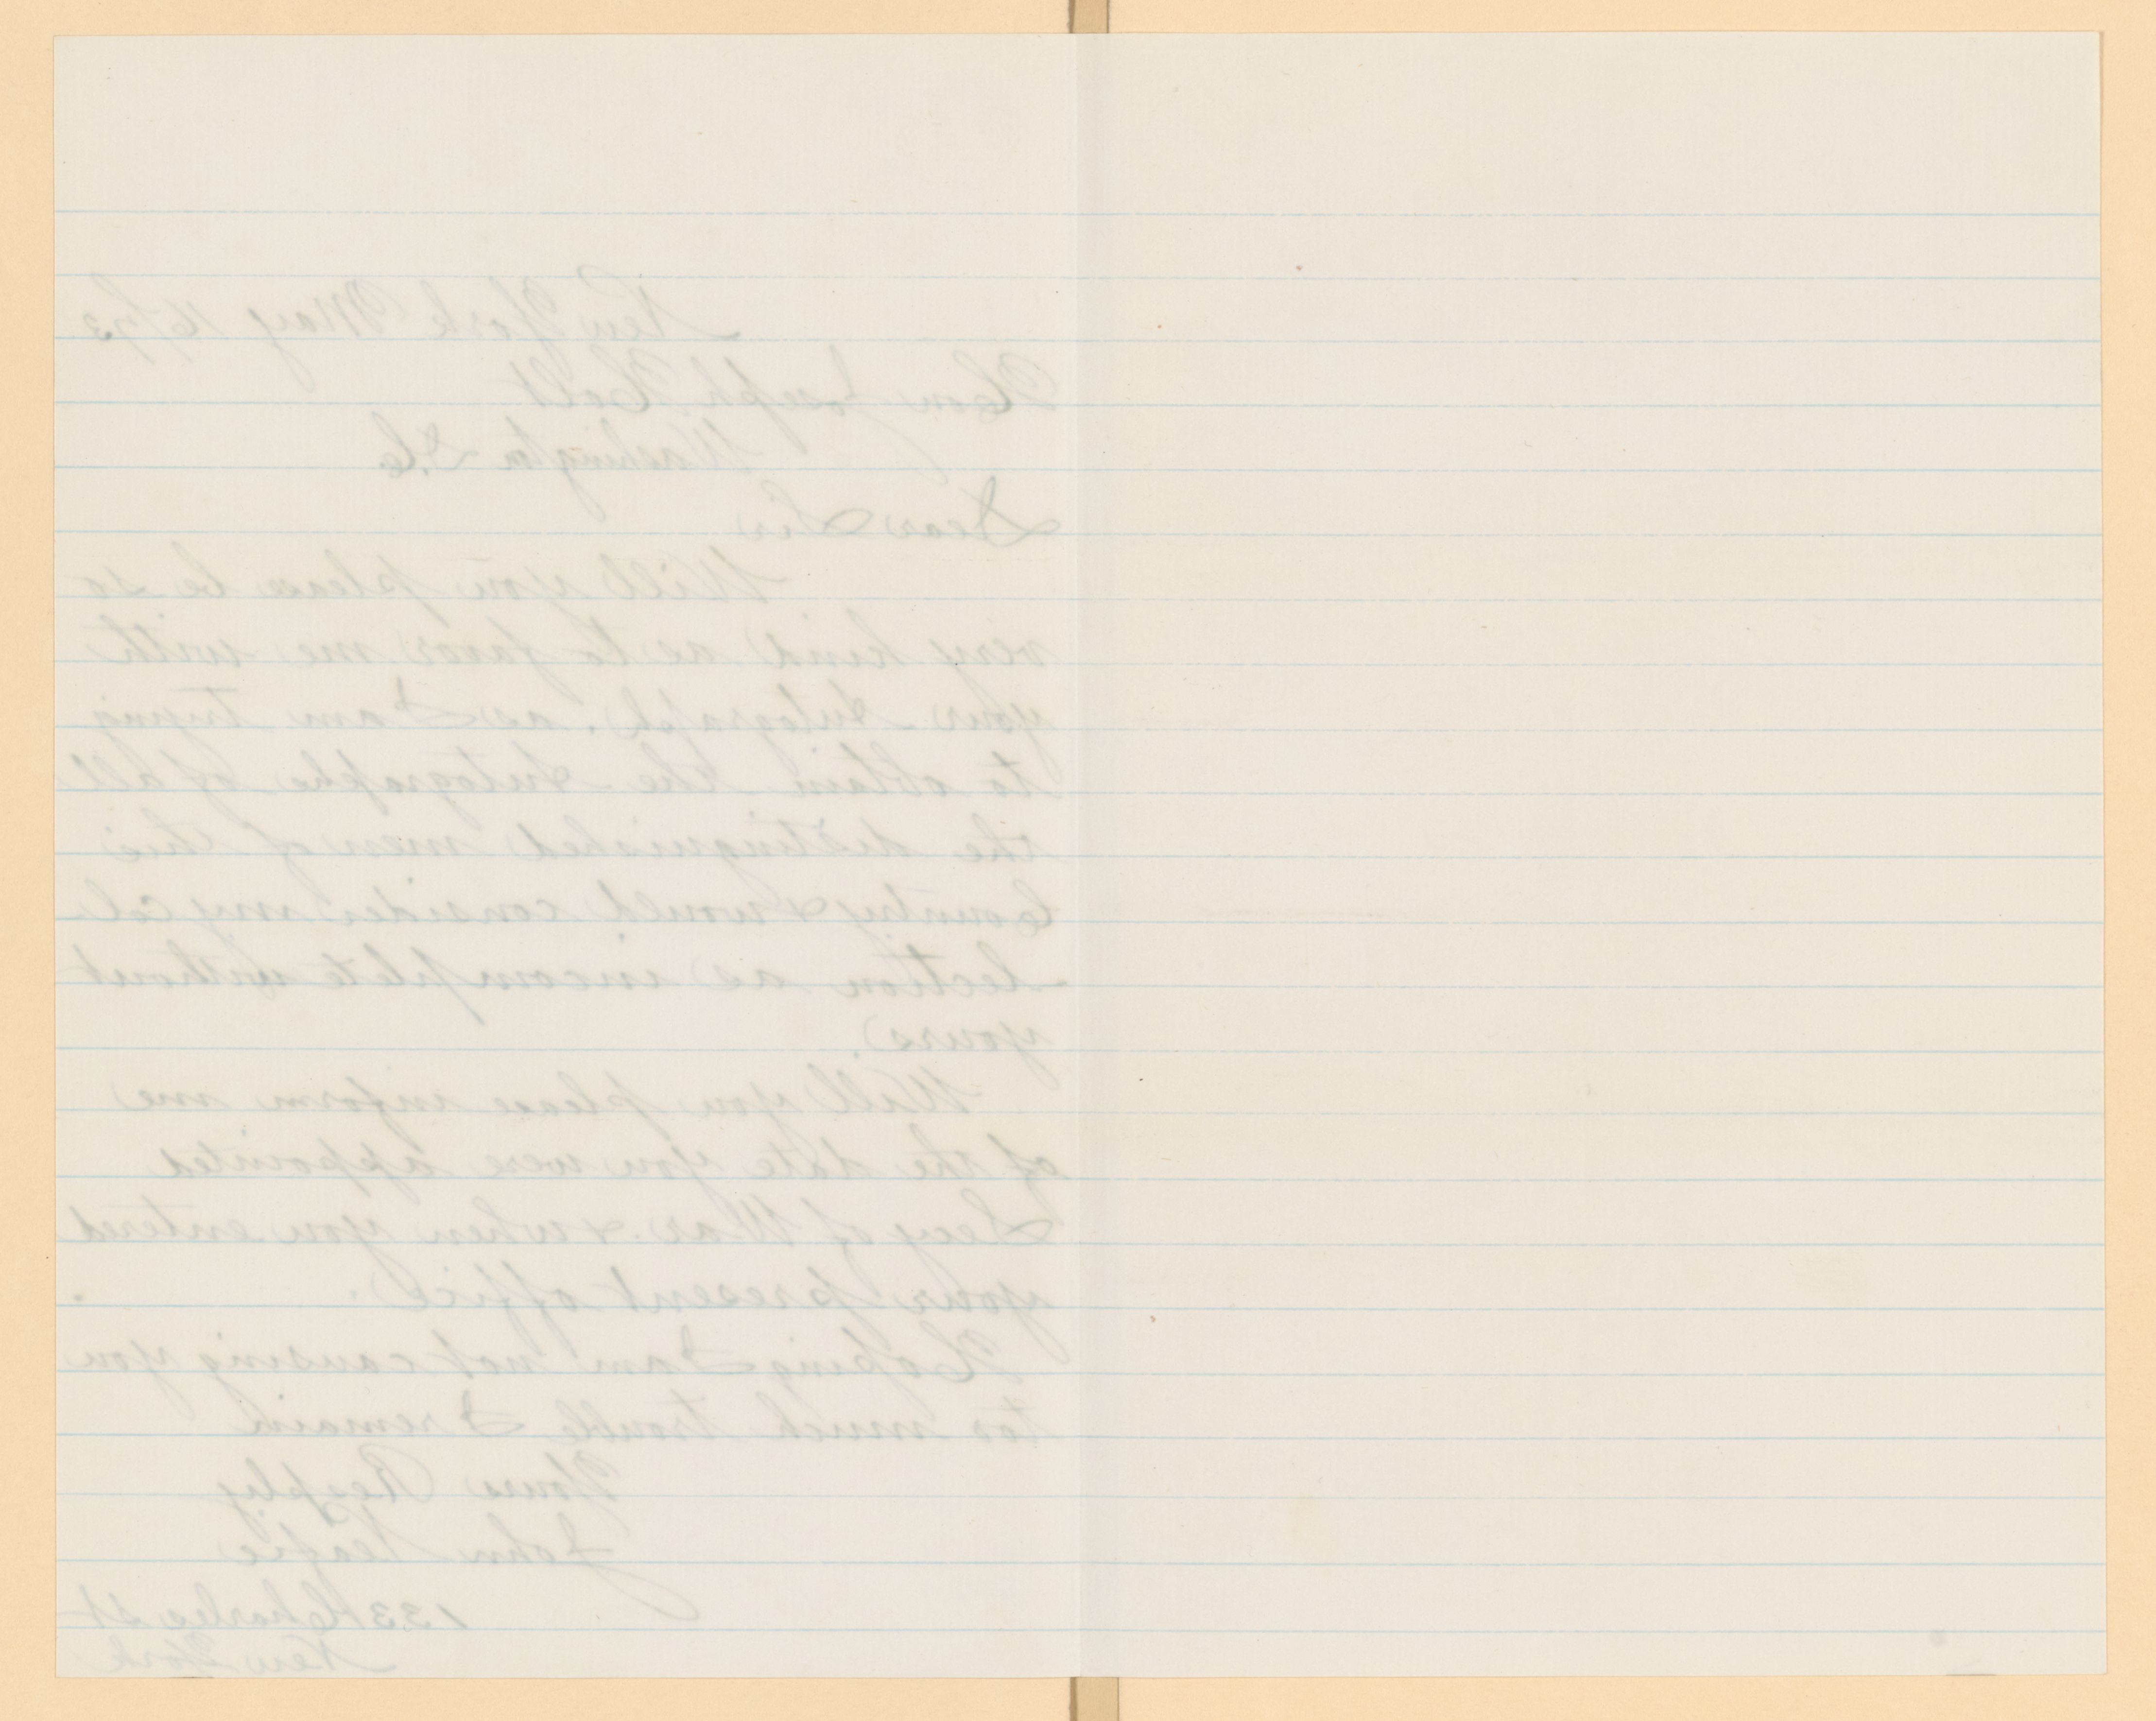 New York May 16/73
Hon Joseph Holt
Washington D.C.
Dear Sir
Will you please be so
very kind as to favor me with
your Autograph. as I am trying
to obtain the Autographs of all
the distinguished men of this
Country & would consider my col-
lection as incomplete without
yours
Will you please inform me
of the date you were appointed
Secy of War & when you entered
your present office.
Hoping I am not causing you
too much trouble I remain
Yours Respfly
John Neafie
133 Charles St
New York